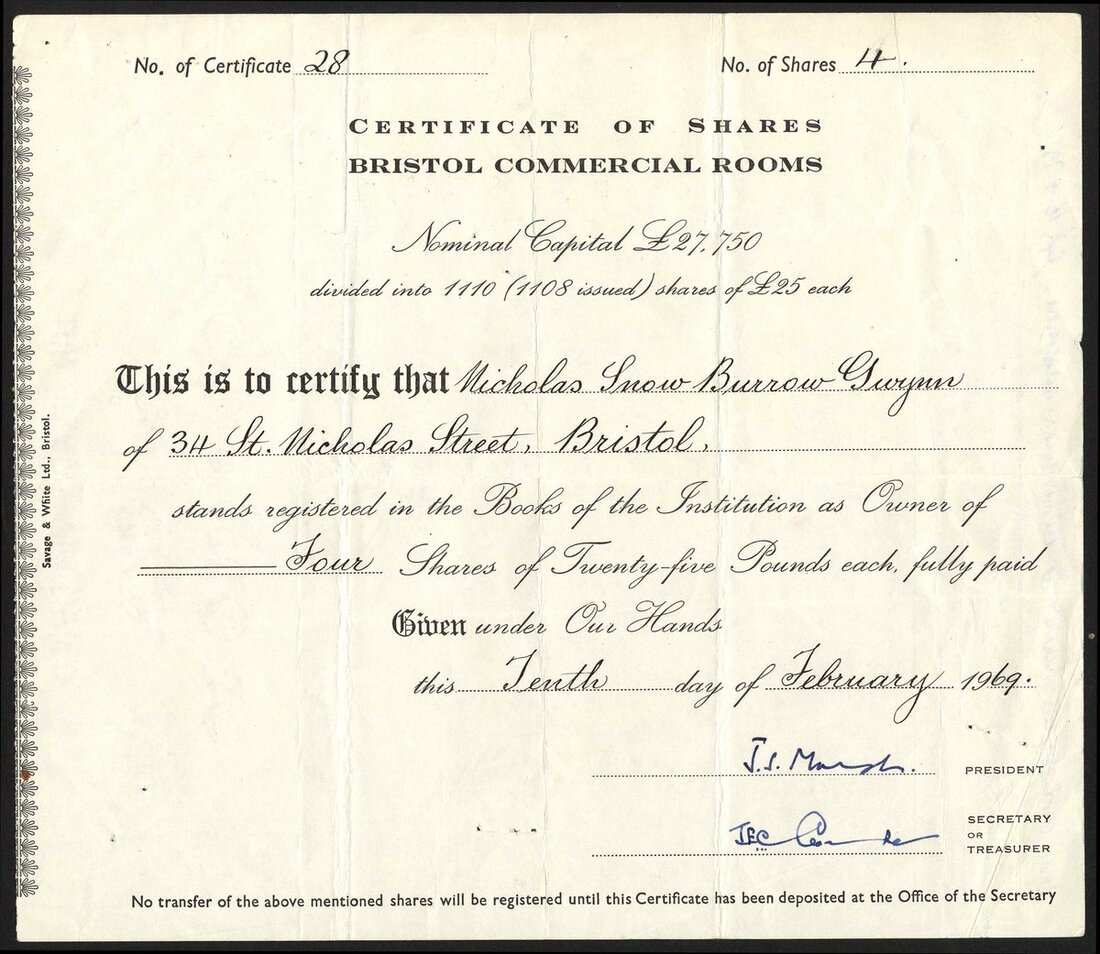 No. of Certificate 28
No. of Shares 4.
CERTIFICATE OF SHARES
BRISTOL COMMERCIAL ROOMS
Nominal Capital £27,750
divided into 1110 (1108 issued) shares of £25 each
This is to certify that Nicholas Snow Burrow Gwynn
of 34 St. Nicholas Street, Bristol,
stands registered in the Books of the Institution as Owner of
Four Shares of Twenty-five Pounds each, fully paid
Given under Our Hands
this Tenth day of February 1969.
J.S. PRESIDENT
SECRETARY
OR
TREASURER
No transfer of the above mentioned shares will be registered until this Certificate has been deposited at the Office of the Secretary
Savage & White Ltd., Bristol.